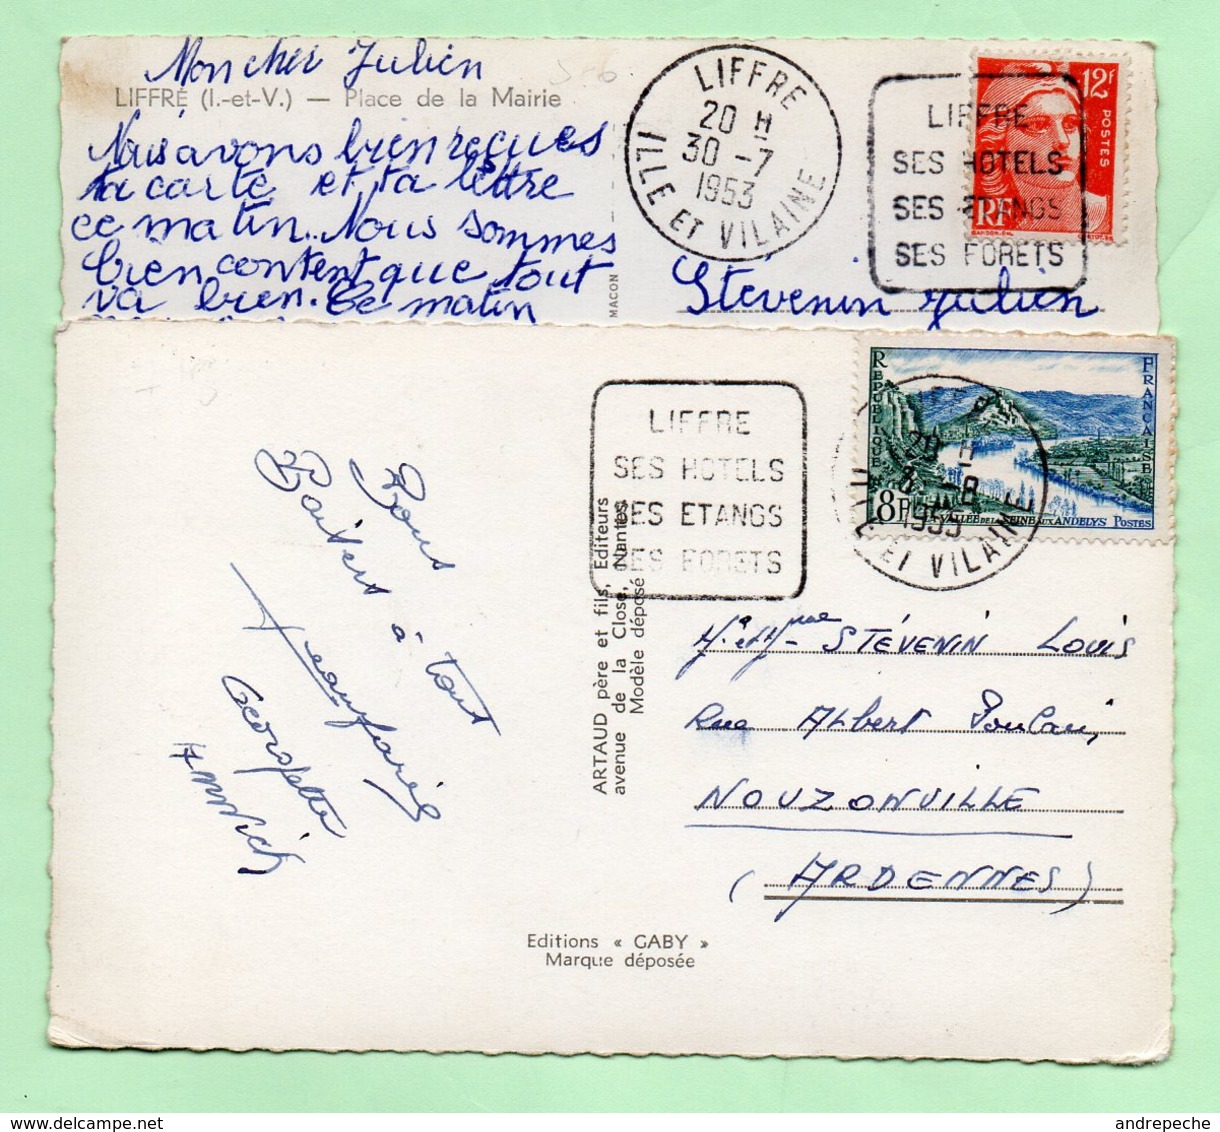 Mon cher Julien
LIFFRÉ (I.-et-V.) — Place de la Mairie
Nous avons bien reçues
ta carte et ta lettre
ce matin. Nous sommes
bien content que tout
va bien. Ce matin
LIFFRE
20 H
30 -7
1953
ILLE ET VILAINE
LIFFRE
SES HOTELS
SES ETANGS
SES FORETS
12F
POSTES
RF
MACON
Stévenin Julien
LIFFRE
SES HOTELS
SES ETANGS
SES FORETS
REPUBLIQUE FRANCAISE
8F
LA VALLEE DE LA SEINE AUX ANDELYS POSTES
20 H
-8
1953
ILLE ET VILAINE
Bons
Baisers à tout
Jean Marie
Georgette
Annick
ARTAUD père et fils, Editeurs
avenue de la Close, Nantes
Modèle déposé
Mr et Mme STÉVENIN LOUIS
Rue Albert Poulain,
NOUZONVILLE
(ARDENNES)
Editions « GABY »
Marque déposée
andrepeche